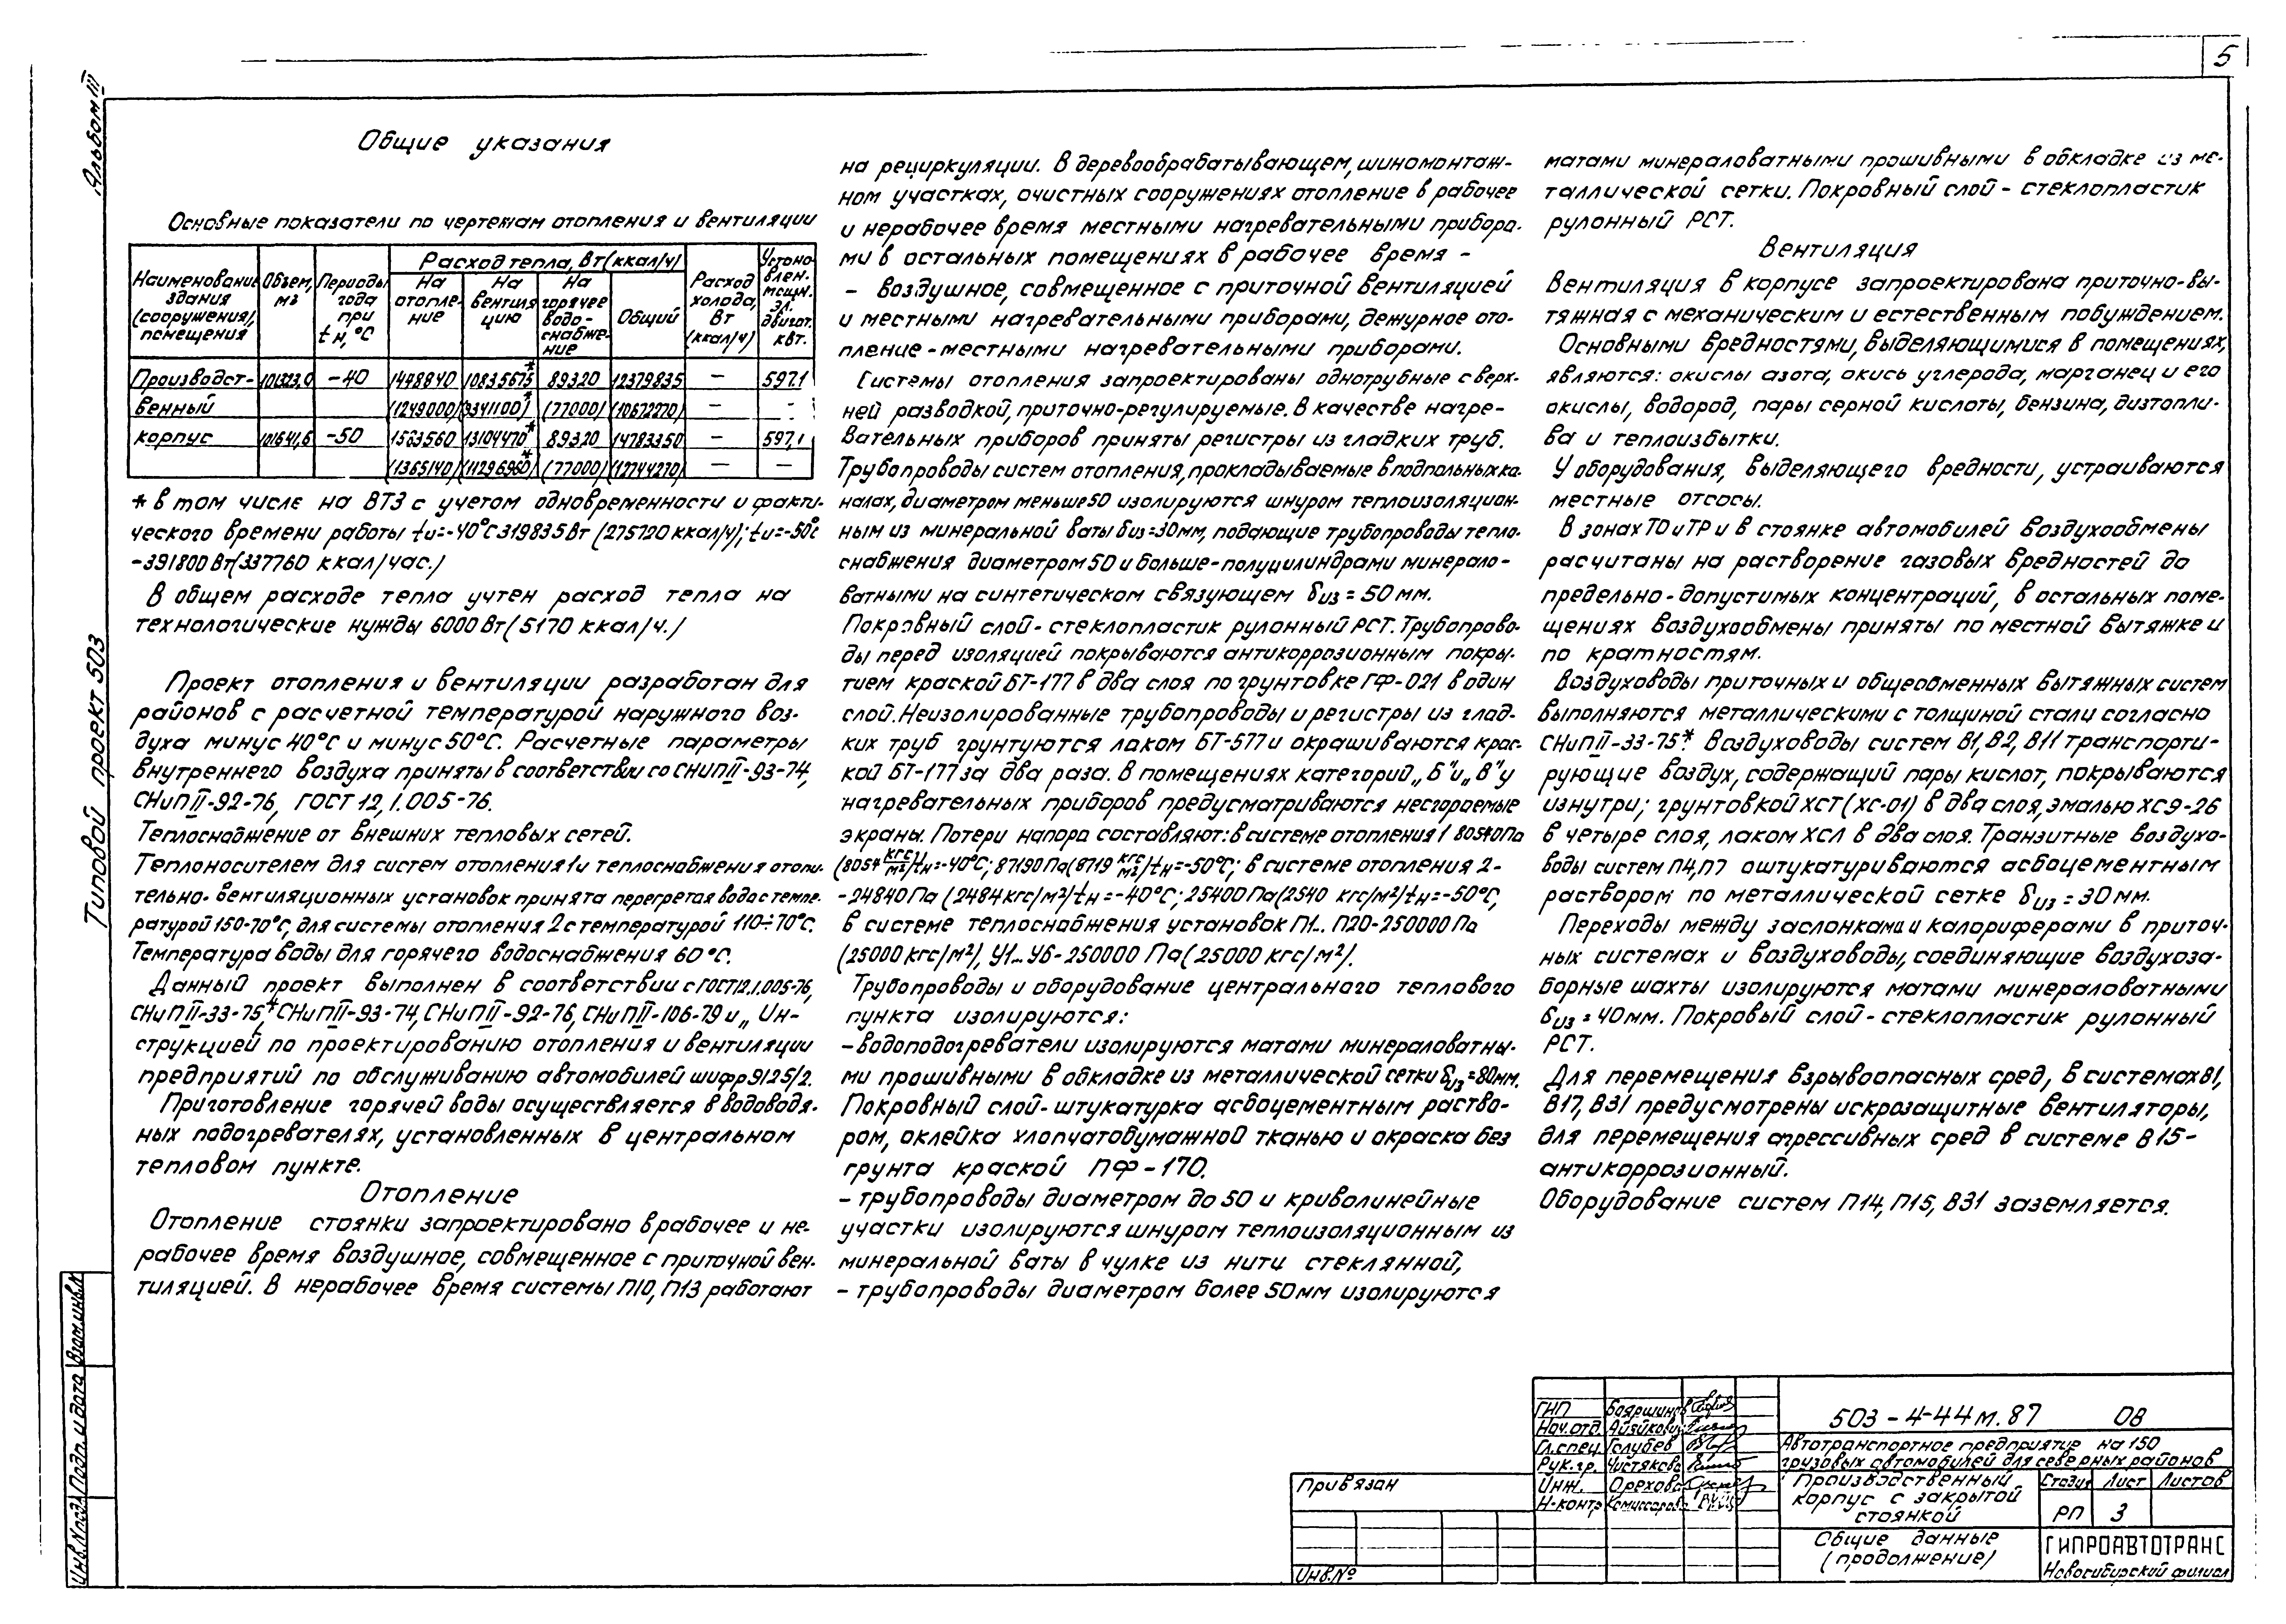 5
Альбом III
Типовой проект 503
Общие указания
Основные показатели по чертежам отопления и вентиляции
Наименование здания (сооружения), помещения
Объем, м3
Периоды года при tн, °С
Расход тепла, Вт (ккал/ч)
На отопле-ние
На вентиля цию
На горячее водо-снабже-ние
Общий
Расход холода, Вт (ккал/ч)
Устано-влен. мощн. эл. двигат. квт.
Производст- 101323,0 -40 1448840 10835675* 89320 12379835 — 597,1
венный (1249000) (9341100)* (77000) (10672270) — -
корпус 101641,6 -50 1583560 13104470* 89320 14783350 — 597,1
(1365140) (11296960)* (77000) (12744270) — —
* в том числе на ВТЗ с учетом одновременности и факти-
ческого времени работы tн=-40°С 319835 Вт (275720 ккал/ч); tн=-50°С
-391800 Вт (337760 ккал/час.)
В общем расходе тепла учтен расход тепла на
технологические нужды 6000 Вт (5170 ккал/ч.)
Проект отопления и вентиляции разработан для
районов с расчетной температурой наружного воз-
духа минус 40°С и минус 50°С. Расчетные параметры
внутреннего воздуха приняты в соответствии со СНиП II-93-74,
СНиП II-92-76, ГОСТ 12.1.005-76.
Теплоснабжение от внешних тепловых сетей.
Теплоносителем для систем отопления 1 и теплоснабжения отопи-
тельно-вентиляционных установок принята перегретая вода с темпе-
ратурой 150-70°С, для системы отопления 2 с температурой 110÷70°С.
Температура воды для горячего водоснабжения 60°С.
Данный проект выполнен в соответствии с ГОСТ 12.1.005-76,
СНиП II-33-75*, СНиП II-93-74, СНиП II-92-76, СНиП II-106-79 и „Ин-
струкцией по проектированию отопления и вентиляции
предприятий по обслуживанию автомобилей шифр 9125/2.
Приготовление горячей воды осуществляется в водоводя-
ных подогревателях, установленных в центральном
тепловом пункте.
Отопление
Отопление стоянки запроектировано в рабочее и не-
рабочее время воздушное, совмещенное с приточной вен-
тиляцией. В нерабочее время системы П10, П13 работают
на рециркуляции. В деревообрабатывающем, шиномонтаж-
ном участках, очистных сооружениях отопление в рабочее
и нерабочее время местными нагревательными прибора-
ми в остальных помещениях в рабочее время -
- воздушное, совмещенное с приточной вентиляцией
и местными нагревательными приборами, дежурное ото-
пление-местными нагревательными приборами.
Системы отопления запроектированы однотрубные с верх-
ней разводкой, приточно-регулируемые. В качестве нагре-
вательных приборов приняты регистры из гладких труб.
Трубопроводы систем отопления, прокладываемые в подпольных ка-
налах, диаметром меньше 50 изолируются шнуром теплоизоляцион-
ным из минеральной ваты δиз=30мм, подающие трубопроводы тепло-
снабжения диаметром 50 и больше-полуцилиндрами минерало-
ватными на синтетическом связующем δиз = 50 мм.
Покровный слой - стеклопластик рулонный РСТ. Трубопрово-
ды перед изоляцией покрываются антикоррозионным покры-
тием краской БТ-177 в два слоя по грунтовке ГФ-021 в один
слой. Неизолированные трубопроводы и регистры из глад-
ких труб грунтуются лаком БТ-577 и окрашиваются крас-
кой БТ-177 за два раза. В помещениях категорий „Б" и „В" у
нагревательных приборов предусматриваются несгораемые
экраны. Потери напора составляют: в системе отопления 1 80540 Па
(8054 кгс/м2) tн=-40°С; 87190 Па (8719 кгс/м2) tн=-50°С; в системе отопления 2-
-24840 Па (2484 кгс/м²) tн = -40°С; 25400 Па (2540 кгс/м²) tн=-50°С,
в системе теплоснабжения установок П1... П20-250000 Па
(25000 кгс/м²), У1...У6-250000 Па (25000 кгс/м²).
Трубопроводы и оборудование центрального теплового
пункта изолируются:
-водоподогреватели изолируются матами минераловатны-
ми прошивными в обкладке из металлической сетки δиз=80мм.
Покровный слой-штукатурка асбоцементным раство-
ром, оклейка хлопчатобумажной тканью и окраска без
грунта краской ПФ-170.
- трубопроводы диаметром до 50 и криволинейные
участки изолируются шнуром теплоизоляционным из
минеральной ваты в чулке из нити стеклянной,
- трубопроводы диаметром более 50 мм изолируются
матами минераловатными прошивными в обкладке из ме-
таллической сетки. Покровный слой - стеклопластик
рулонный РСТ.
Вентиляция
Вентиляция в корпусе запроектирована приточно-вы-
тяжная с механическим и естественным побуждением.
Основными вредностями, выделяющимися в помещениях,
являются: окислы азота, окись углерода, марганец и его
окислы, водород, пары серной кислоты, бензина, дизтопли-
ва и теплоизбытки.
У оборудования, выделяющего вредности, устраиваются
местные отсосы.
В зонах ТО и ТР и в стоянке автомобилей воздухообмены
расчитаны на растворение газовых вредностей до
предельно-допустимых концентраций, в остальных поме-
щениях воздухообмены приняты по местной вытяжке и
по кратностям.
Воздуховоды приточных и общеобменных вытяжных систем
выполняются металлическими с толщиной стали согласно
СНиП II-33-75*. Воздуховоды систем В1, В2, В11 транспорти-
рующие воздух, содержащий пары кислот, покрываются
изнутри; грунтовкой ХСТ (ХС-01) в два слоя, эмалью ХСЭ-26
в четыре слоя, лаком ХСЛ в два слоя. Транзитные воздухо-
воды систем П4, П7 оштукатуриваются асбоцементным
раствором по металлической сетке δиз = 30 мм.
Переходы между заслонками и калориферами в приточ-
ных системах и воздуховоды, соединяющие воздухоза-
борные шахты изолируются матами минераловатными
δиз = 40мм. Покровый слой - стеклопластик рулонный
РСТ.
Для перемещения взрывоопасных сред, в системах В1,
В17, В31 предусмотрены искрозащитные вентиляторы,
для перемещения агрессивных сред в системе В15-
антикоррозионный.
Оборудование систем П14, П15, В31 заземляется.
Взам.инв.№
Подп. и дата
Инв.№подл.
Привязан
Инв.№
ГИП Бояршинов
Нач.отд
Гл.спец. Голубев
Рук.гр. Чистякова
Инж. Орехова
Н-контр Комиссарова
503-4-44м.87 ОВ
Автотранспортное предприятие на 150
грузовых автомобилей для северных районов
Производственный
корпус с закрытой
стоянкой
Стадия Лист Листов
РП 3
Общие данные
(продолжение)
ГИПРОАВТОТРАНС
Новосибирский филиал